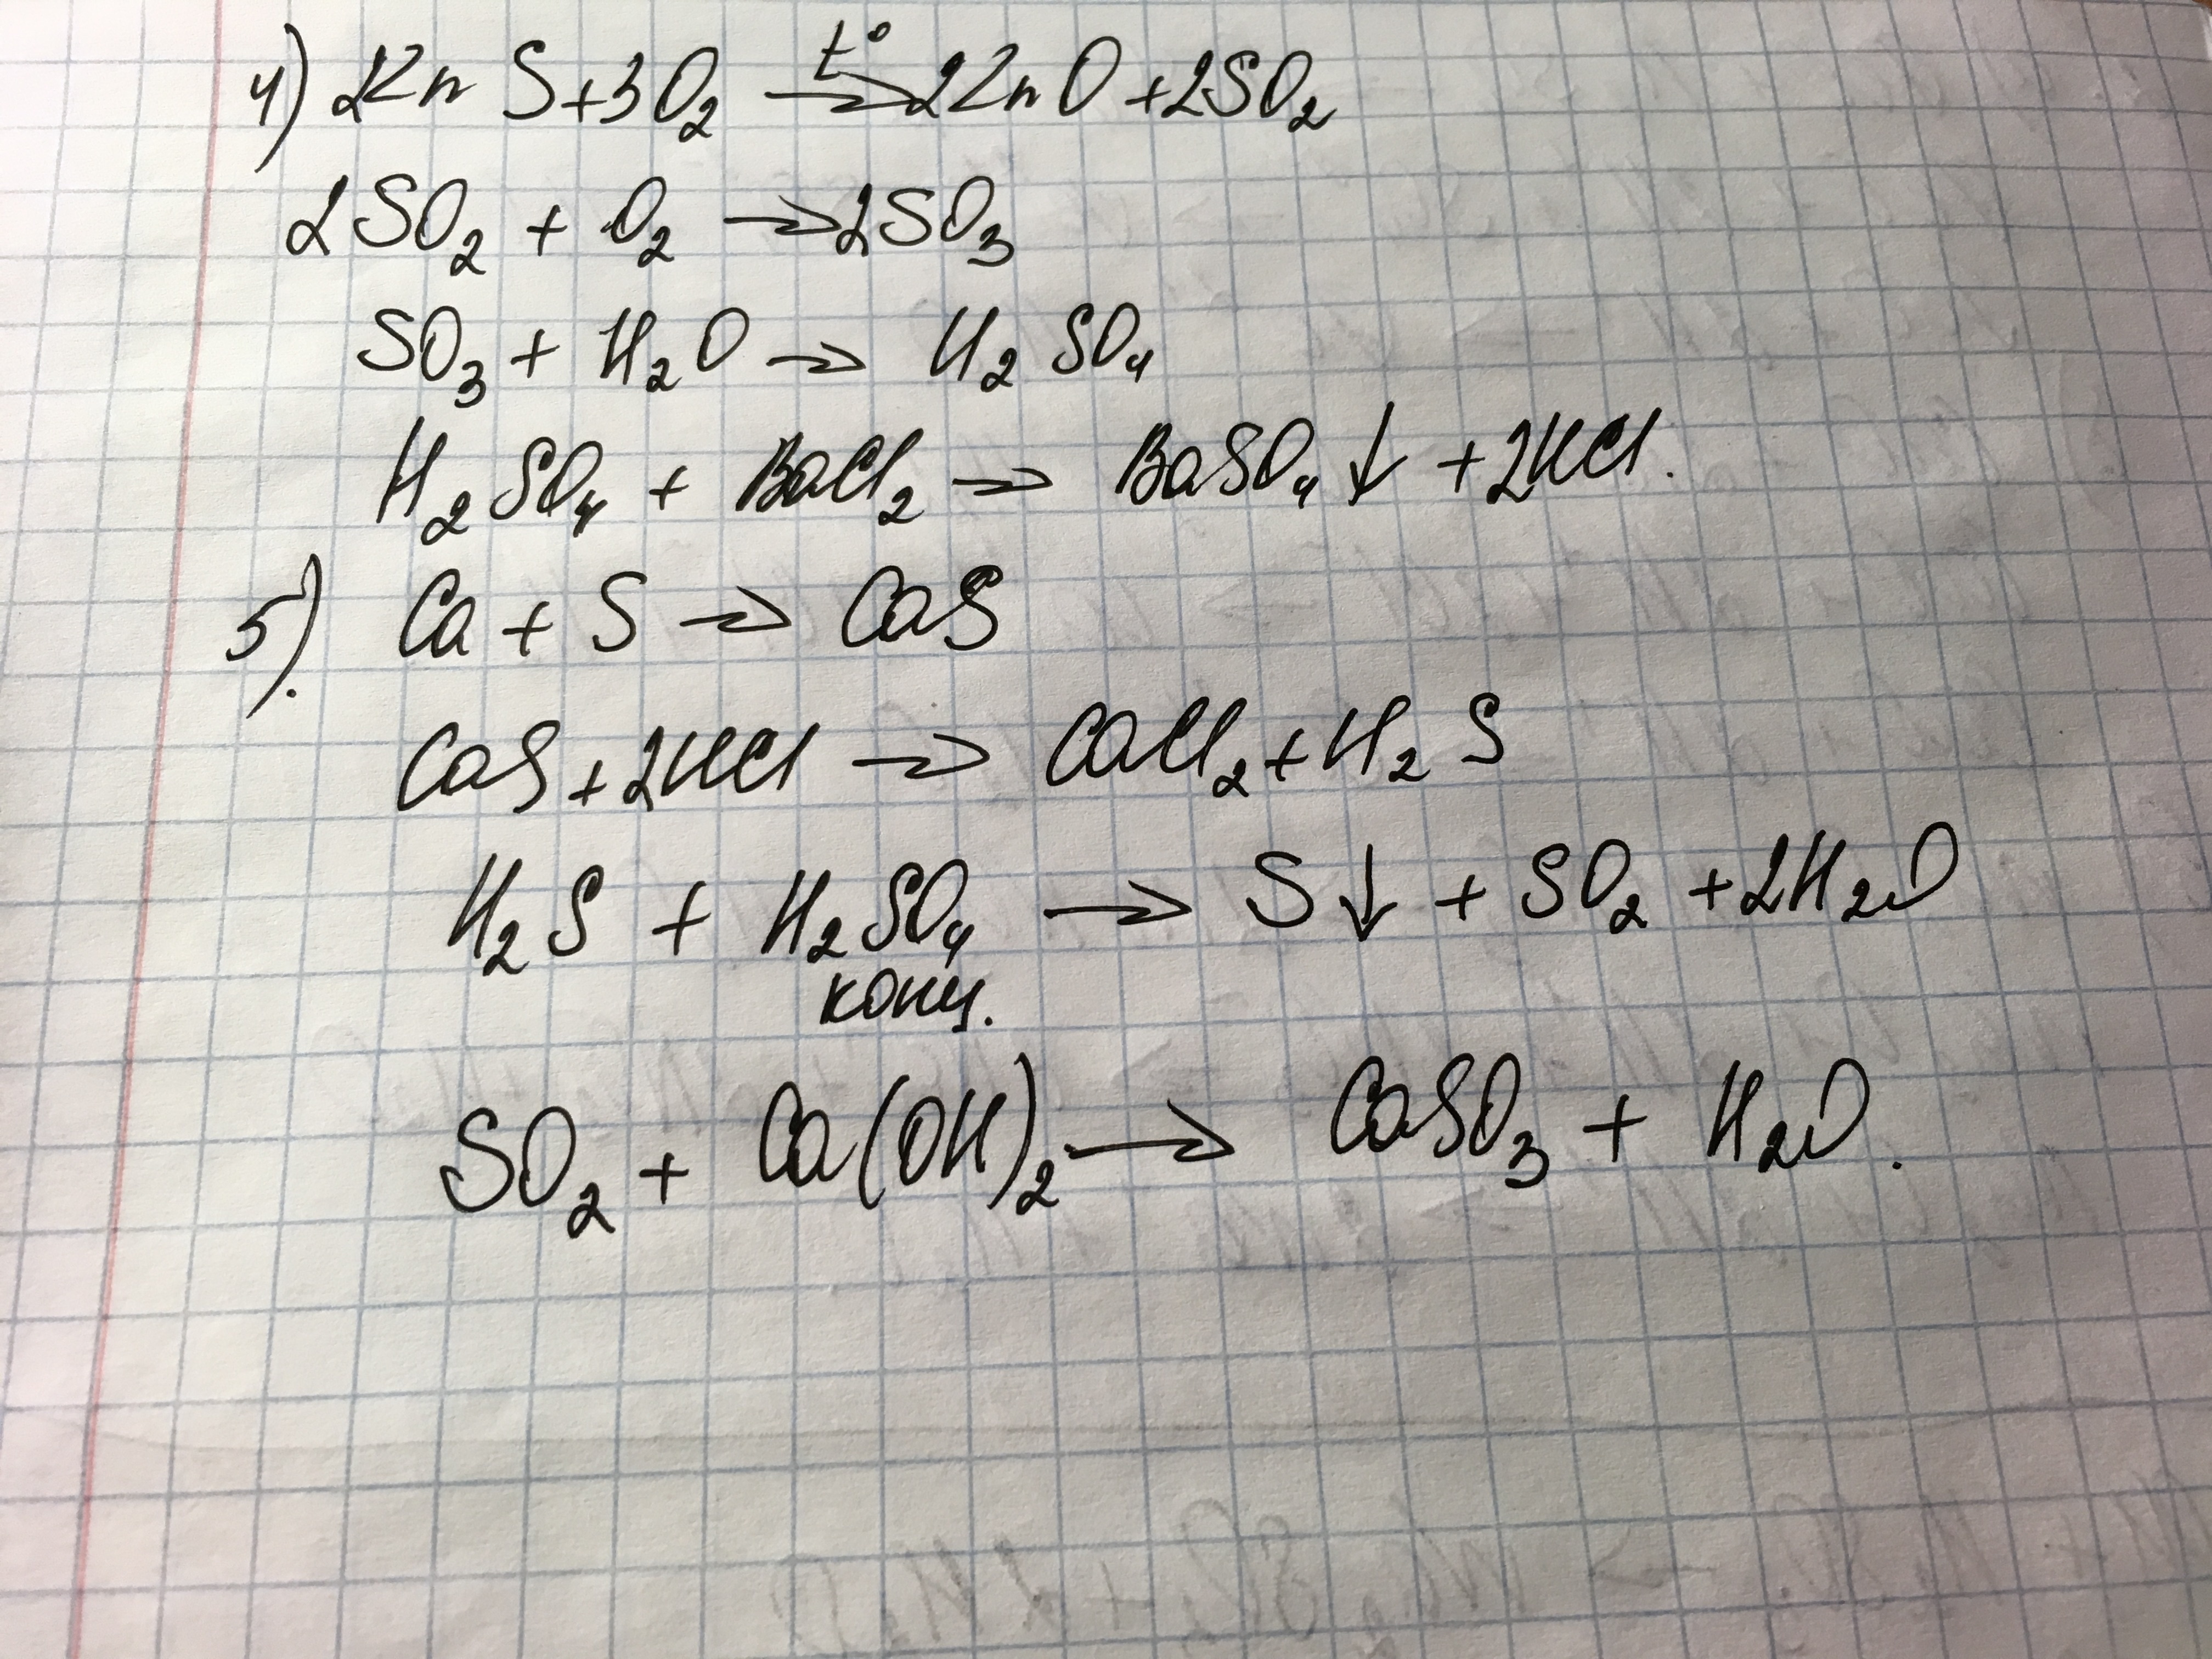 4) 2ZnS+3O₂ –t°→ 2ZnO+2SO₂
2SO₂ + O₂ → 2SO₃
SO₃ + H₂O → H₂SO₄
H₂SO₄ + BaCl₂ → BaSO₄↓ +2HCl.
5). Ca + S → CaS
CaS+2HCl → CaCl₂+H₂S
H₂S + H₂SO₄ → S↓ + SO₂ +2H₂O
конц.
SO₂ + Ca(OH)₂ → CaSO₃ + H₂O.